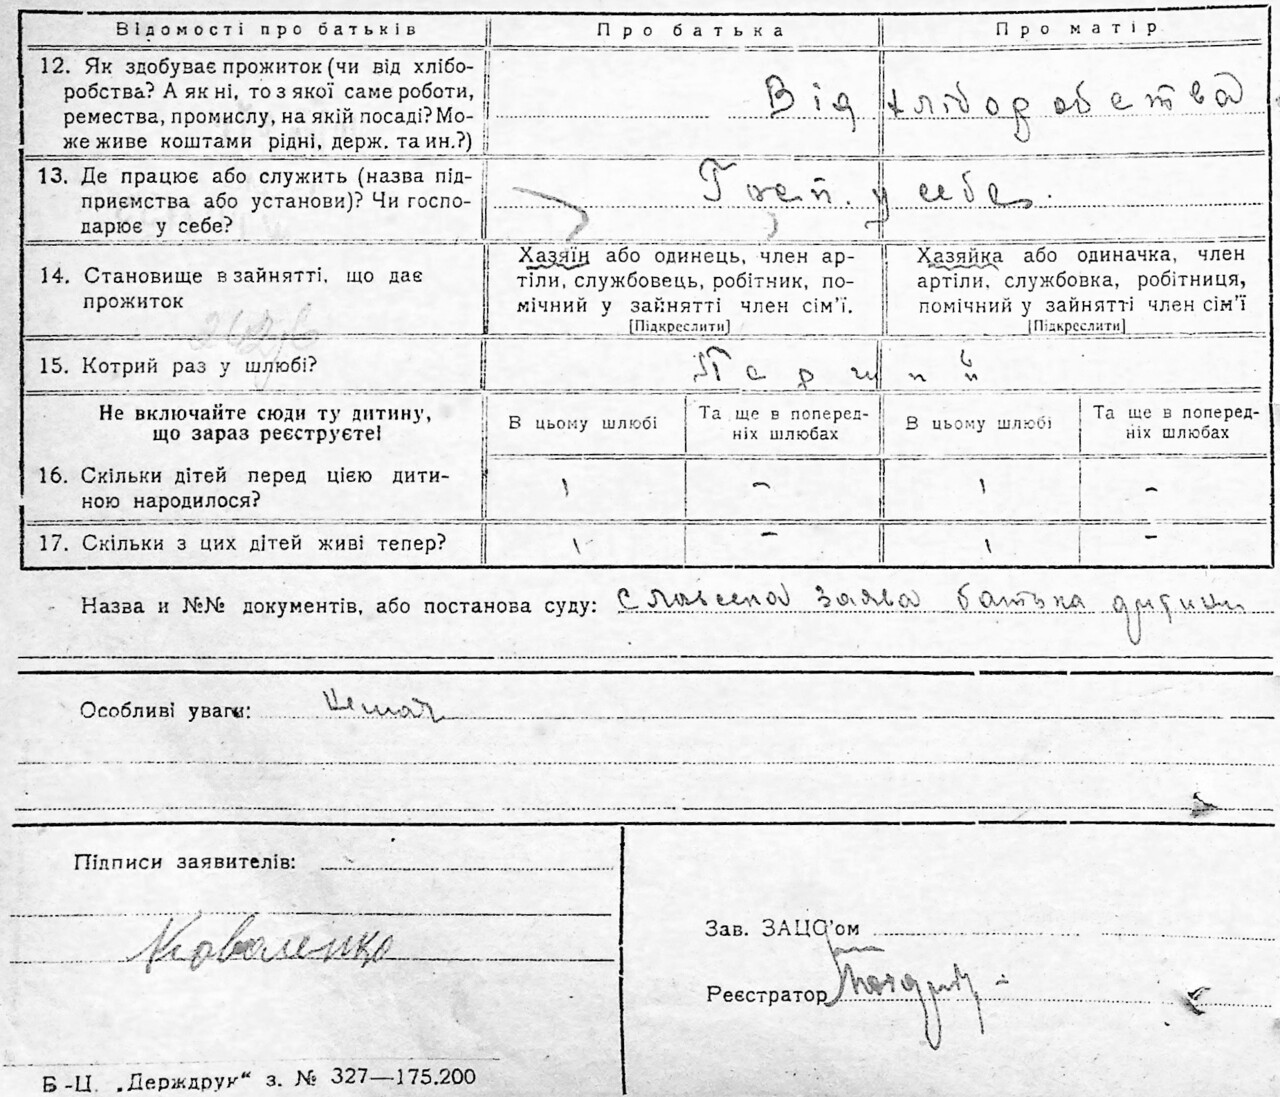 Відомості про батьків Про батька Про матір
12. Як здобуває прожиток (чи від хлібо-
робства? А як ні, то з якої саме роботи,
ремества, промислу, на якій посаді? Мо-
же живе коштами рідні, держ. та ин.?)
Від хліборобства
13. Де працює або служить (назва під-
приємства або установи)? Чи госпо-
дарює у себе?
Госп. у себе.
14. Становище в зайнятті, що дає
прожиток
Хазяїн або одинець, член ар-
тіли, службовець, робітник, по-
мічний у зайнятті член сім'ї.
[Підкреслити]
Хазяйка або одиначка, член
артіли, службовка, робітниця,
помічний у зайнятті член сім'ї
[Підкреслити]
15. Котрий раз у шлюбі?
Перший
Не включайте сюди ту дитину,
що зараз реєструєте!
В цьому шлюбі
Та ще в поперед-
ніх шлюбах
В цьому шлюбі
Та ще в поперед-
ніх шлюбах
16. Скільки дітей перед цією дити-
ною народилося?
1 - 1 -
17. Скільки з цих дітей живі тепер? 1 - 1 -
Назва и №№ документів, або постанова суду: Словесна заява батька дитини
Особливі уваги: Немає
Підписи заявителів:
Коваленко
Зав. ЗАЦС'ом
Реєстратор
Б-Ц. „Держдрук“ з. № 327—175.200